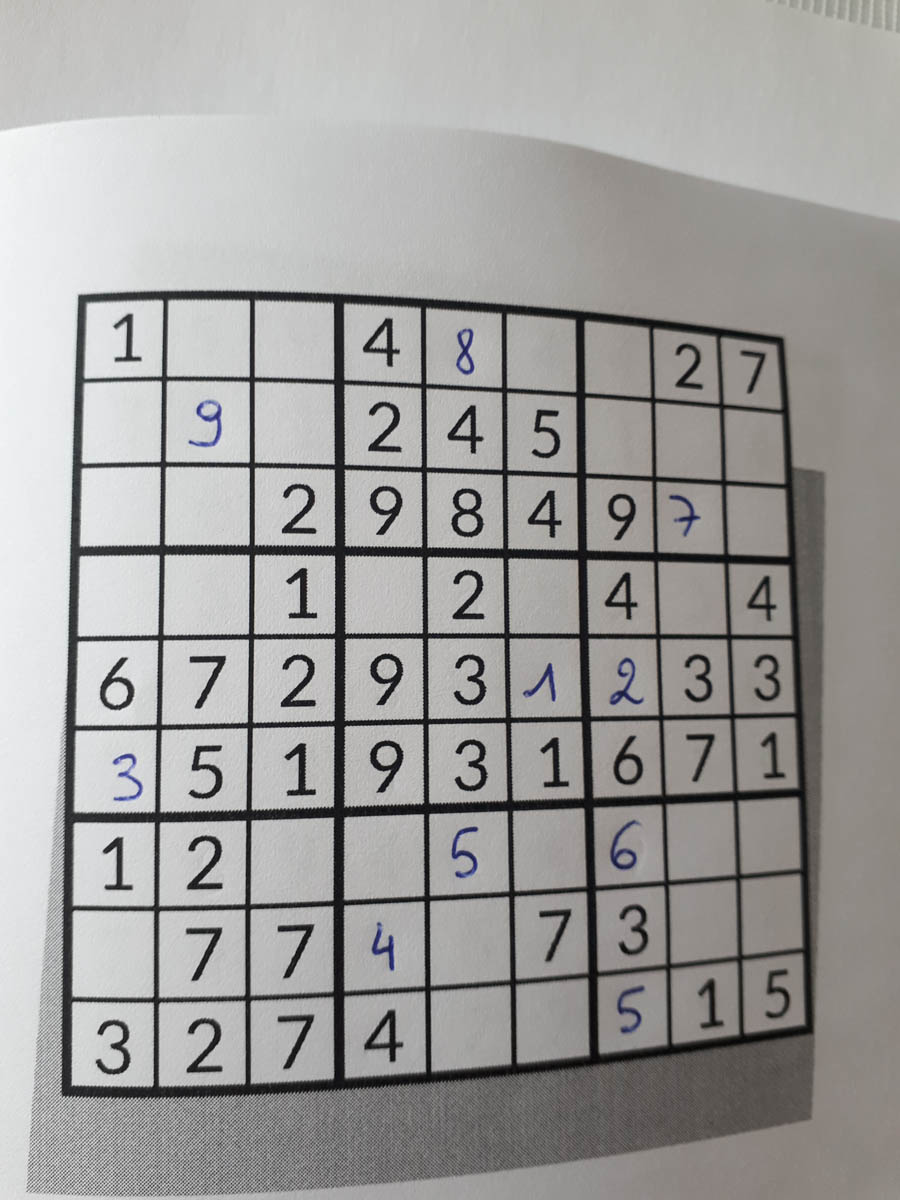 1 4 8 2 7
9 2 4 5
2 9 8 4 9 7
1 2 4 4
6 7 2 9 3 1 2 3 3
3 5 1 9 3 1 6 7 1
1 2 5 6
7 7 4 7 3
3 2 7 4 5 1 5